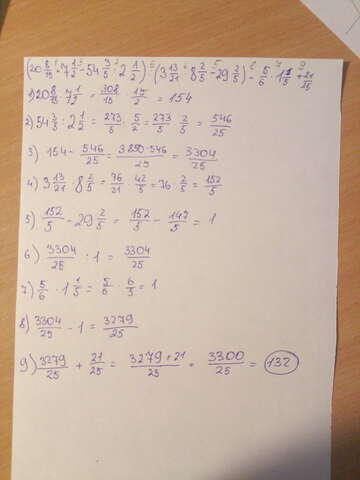 (20 8/15 · 7 1/2 - 54 3/5 : 2 1/2) : (3 13/21 · 8 2/5 - 29 2/5) - 5/6 · 1 1/5 + 21/25
1) 20 8/15 · 7 1/2 = 308/15 · 15/2 = 154
2) 54 3/5 : 2 1/2 = 273/5 : 5/2 = 273/5 · 2/5 = 546/25
3) 154 - 546/25 = 3850-546/25 = 3304/25
4) 3 13/21 · 8 2/5 = 76/21 · 42/5 = 76 · 2/5 = 152/5
5) 152/5 - 29 2/5 = 152/5 - 147/5 = 1
6) 3304/25 : 1 = 3304/25
7) 5/6 · 1 1/5 = 5/6 · 6/5 = 1
8) 3304/25 - 1 = 3279/25
9) 3279/25 + 21/25 = 3279+21/25 = 3300/25 = 132